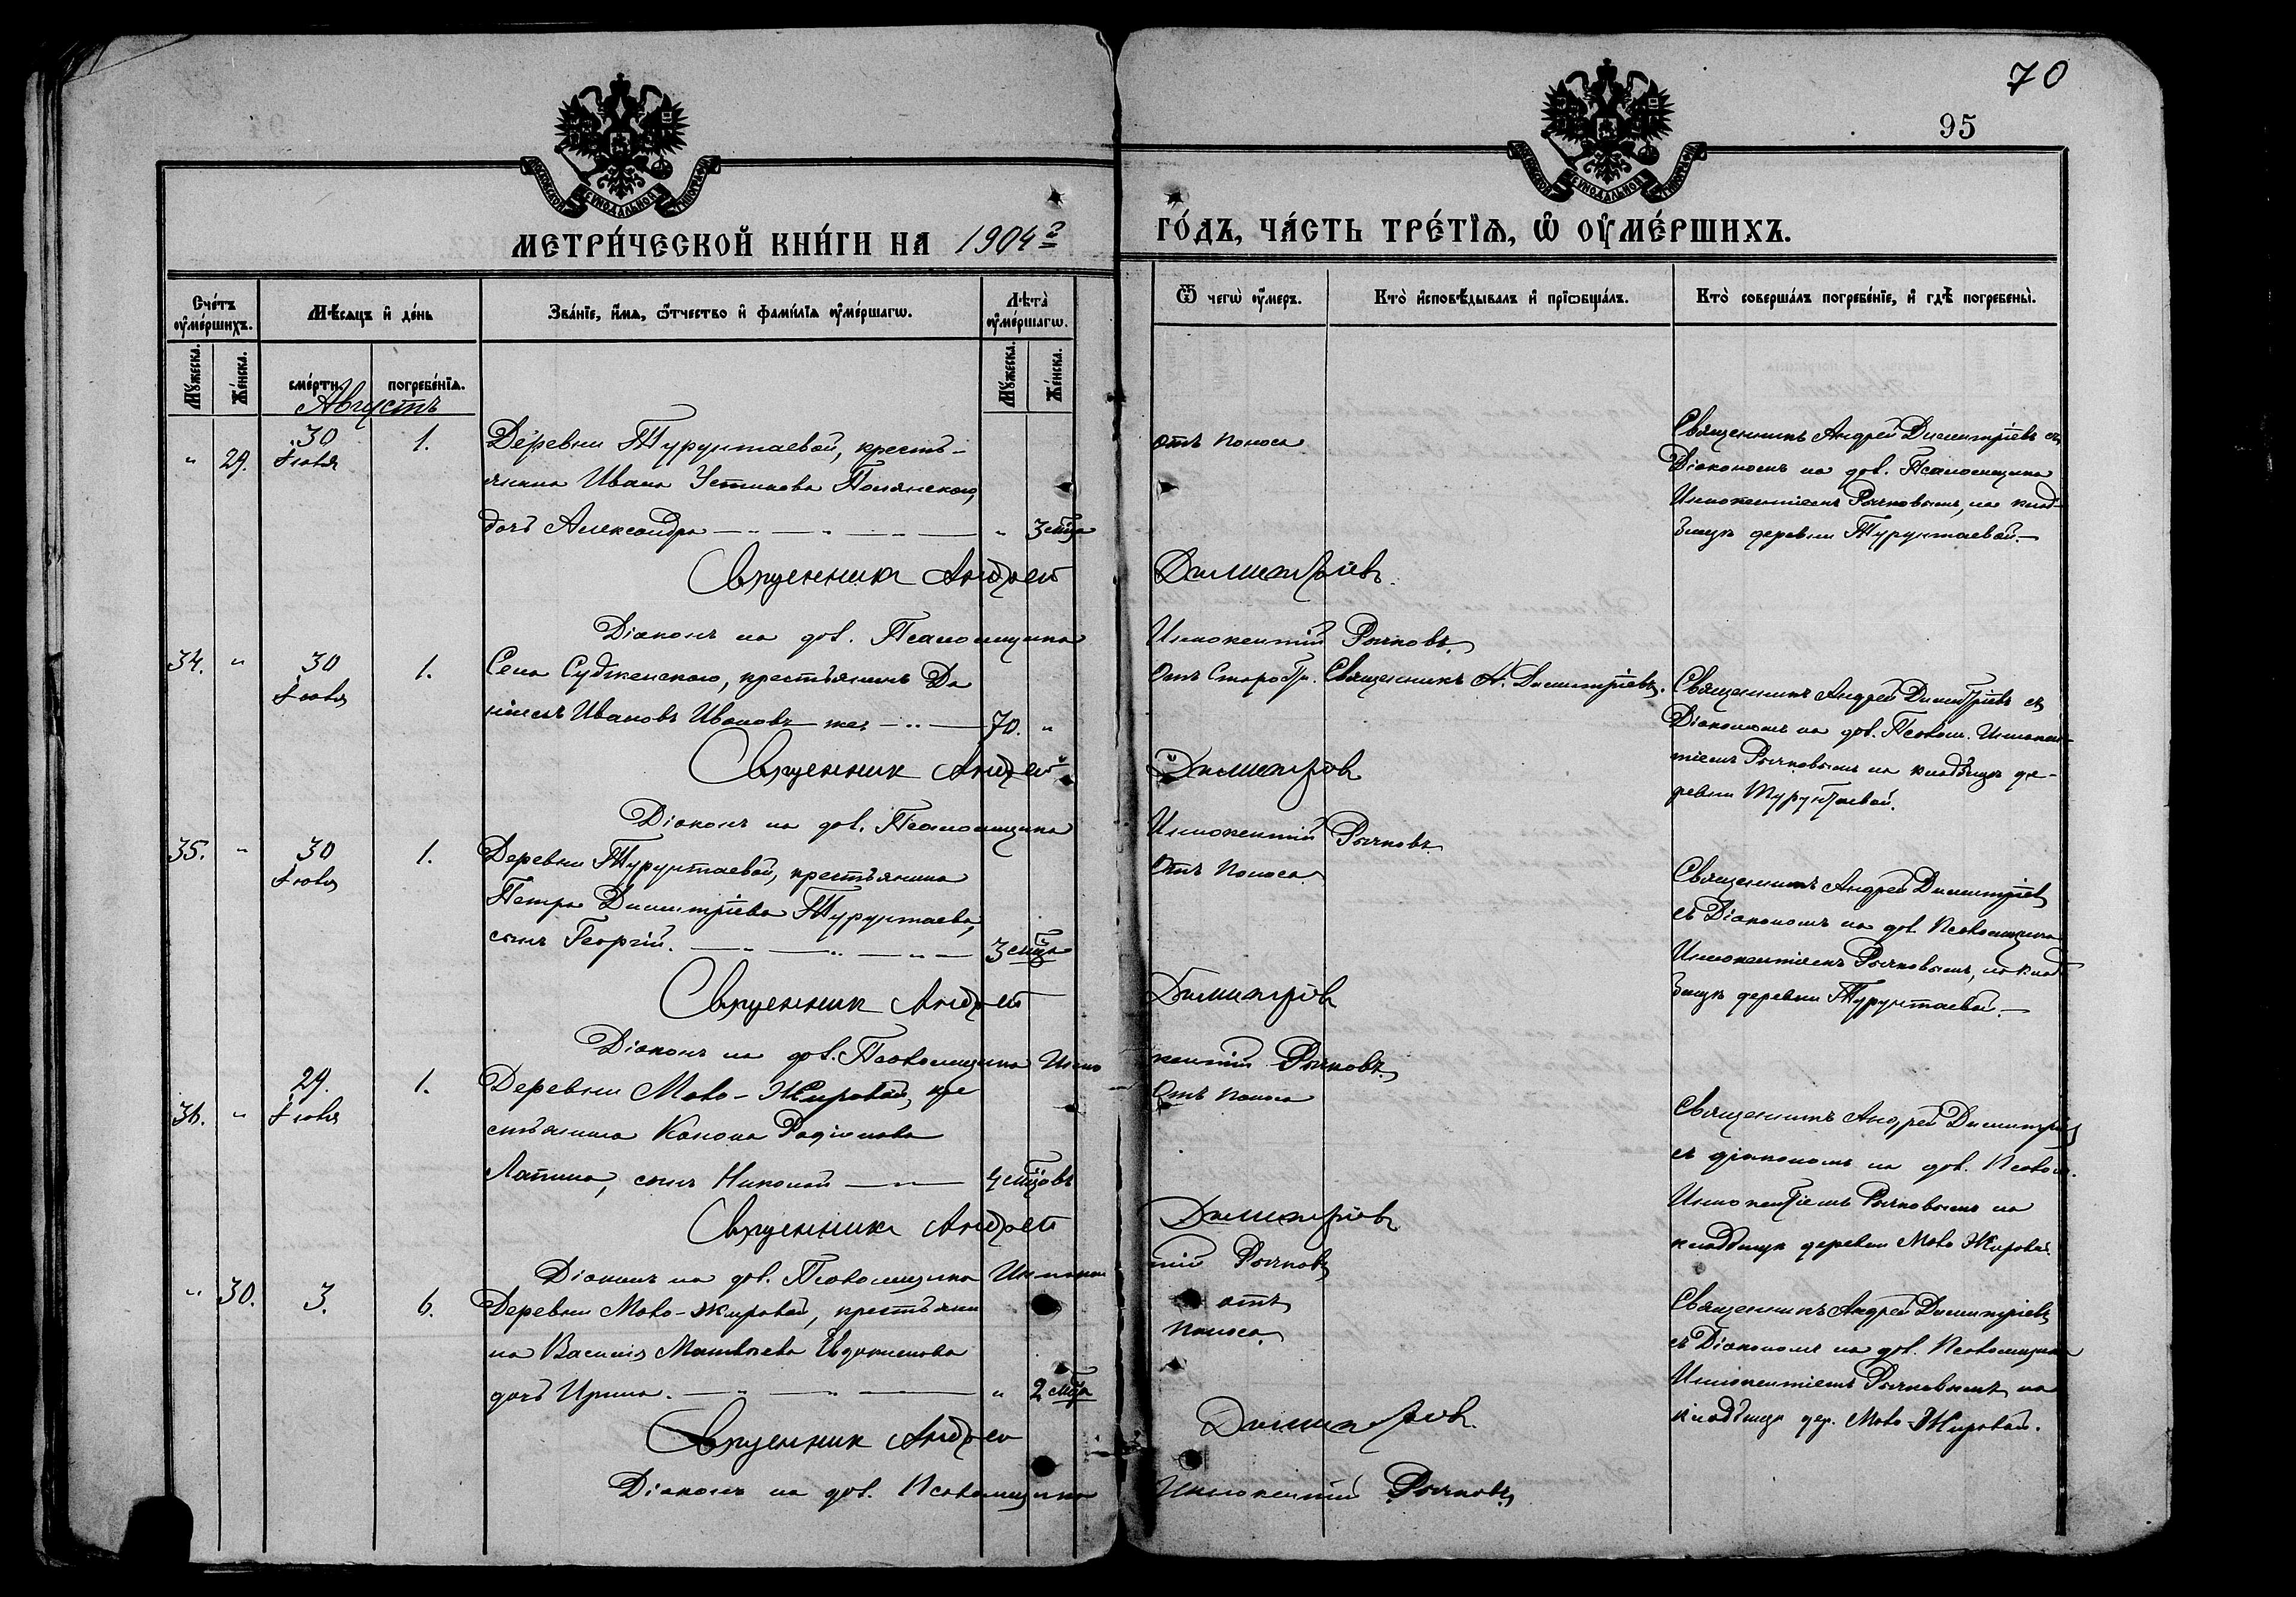 70
95
МОСКОВСКОЙ СѴНОДАЛЬНОЙ ТИПОГРАФІИ
МОСКОВСКОЙ СѴНОДАЛЬНОЙ ТИПОГРАФІИ
МЕТРИ́ЧЕСКОЙ КНИ́ГИ НА 1904 г
ГО́ДЪ, ЧА́СТЬ ТРЕ́ТІѦ, Ѽ ОУ҆МЕ́РШИХЪ.
Сче́тъ оу҆ме́ршихъ.
Мѣ́сѧцъ и҆ де́нь
Зва́нїе, и҆́мѧ, ѻ҆́тчество и҆ фамилїѧ оу҆ме́ршагѡ.
Лѣта̀ оу҆ме́ршагѡ.
Ѿ чегѡ̀ оу҆́меръ.
Кто̀ и҆сповѣ́дывалъ и҆ прїѡбща́лъ.
Кто̀ соверша́лъ погребе́нїе, и҆ гдѣ̀ погребены̀.
Мꙋ́жеска.
Же́нска.
сме́рти.
погребе́нїѧ.
Мꙋ́жеска.
Же́нска.
Августъ
" 29. 30 Іюля 1.
Деревни Турунтаевой, кресть-
янина Ивана Устинова Полянскаго,
дочь Александра " 3 мѣца
отъ поноса
Священникъ Андрей Димитріевъ съ
Діакономъ на дол. Псаломщика
Иннокентіемъ Рычковымъ, на клад-
бищѣ деревни Турунтаевой.
Священникъ Андрей Димитріевъ.
Діаконъ на дол. Псаломщика Иннокентій Рычковъ.
34. " 30 Іюля 1.
Села Судженскаго, крестьянинъ Да
ніилъ Ивановъ Ивановъ же 70. "
Отъ Старости. Священникъ А. Димитріевъ.
Священникъ Андрей Димитріевъ съ
Діакономъ на дол. Псалом. Иннокен-
тіемъ Рычковымъ на кладбищѣ де-
ревни Турунтаевой.
Священник Андрей Димитріев
Діаконъ на дол. Псаломщика Иннокентій Рычковъ.
35. " 30 Іюля 1.
Деревни Турунтаевой, крестьянина
Петра Димитріева Турунтаева,
сынъ Георгій. 3 мѣца
Отъ Поноса
Священникъ Андрей Димитріевъ
съ Діакономъ на дол. Псаломщика
Иннокентіемъ Рычковымъ, на клад
бищѣ деревни Турунтаевой.
Священник Андрей Димитріев
Діаконъ на дол. Псаломщика Инно кентій Рычковъ.
36. " 29. Іюля 1.
Деревни Мало-Жировой, кре
стьянина Конона Родіонова
Лапина, сынъ Николай 4 мѣцовъ
Отъ поноса
Священникъ Андрей Димитріевъ
съ діакономъ на дол. Псалом.
Иннокентіемъ Рычковымъ на
кладбищѣ деревни Мало Жировой.
Священникъ Андрей Димитріевъ
Діаконъ на дол. Псаломщика Иннокен тій Рычковъ
" 30. 3. 6.
Деревни Мало-Жировой, крестьяни
на Василія Матвѣева Евдокимова
дочь Ирина. " 2 мѣца
отъ
поноса
Священникъ Андрей Димитріевъ
съ Діакономъ на дол. Псаломщика
Иннокентіемъ Рычковымъ на
кладбищѣ дер. Мало-Жировой.
Священник Андрей Димитріев.
Діаконъ на дол. Псаломщика Иннокентій Рычковъ